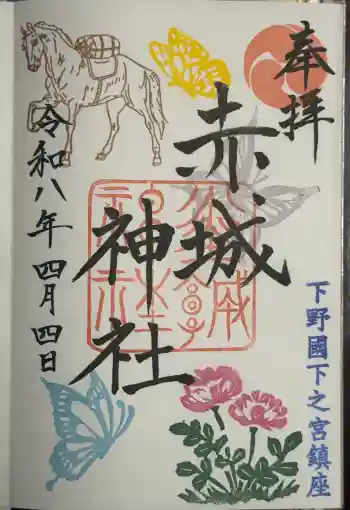 奉拝
赤城
神社
令和八年四月四日
下野國下之宮鎮座